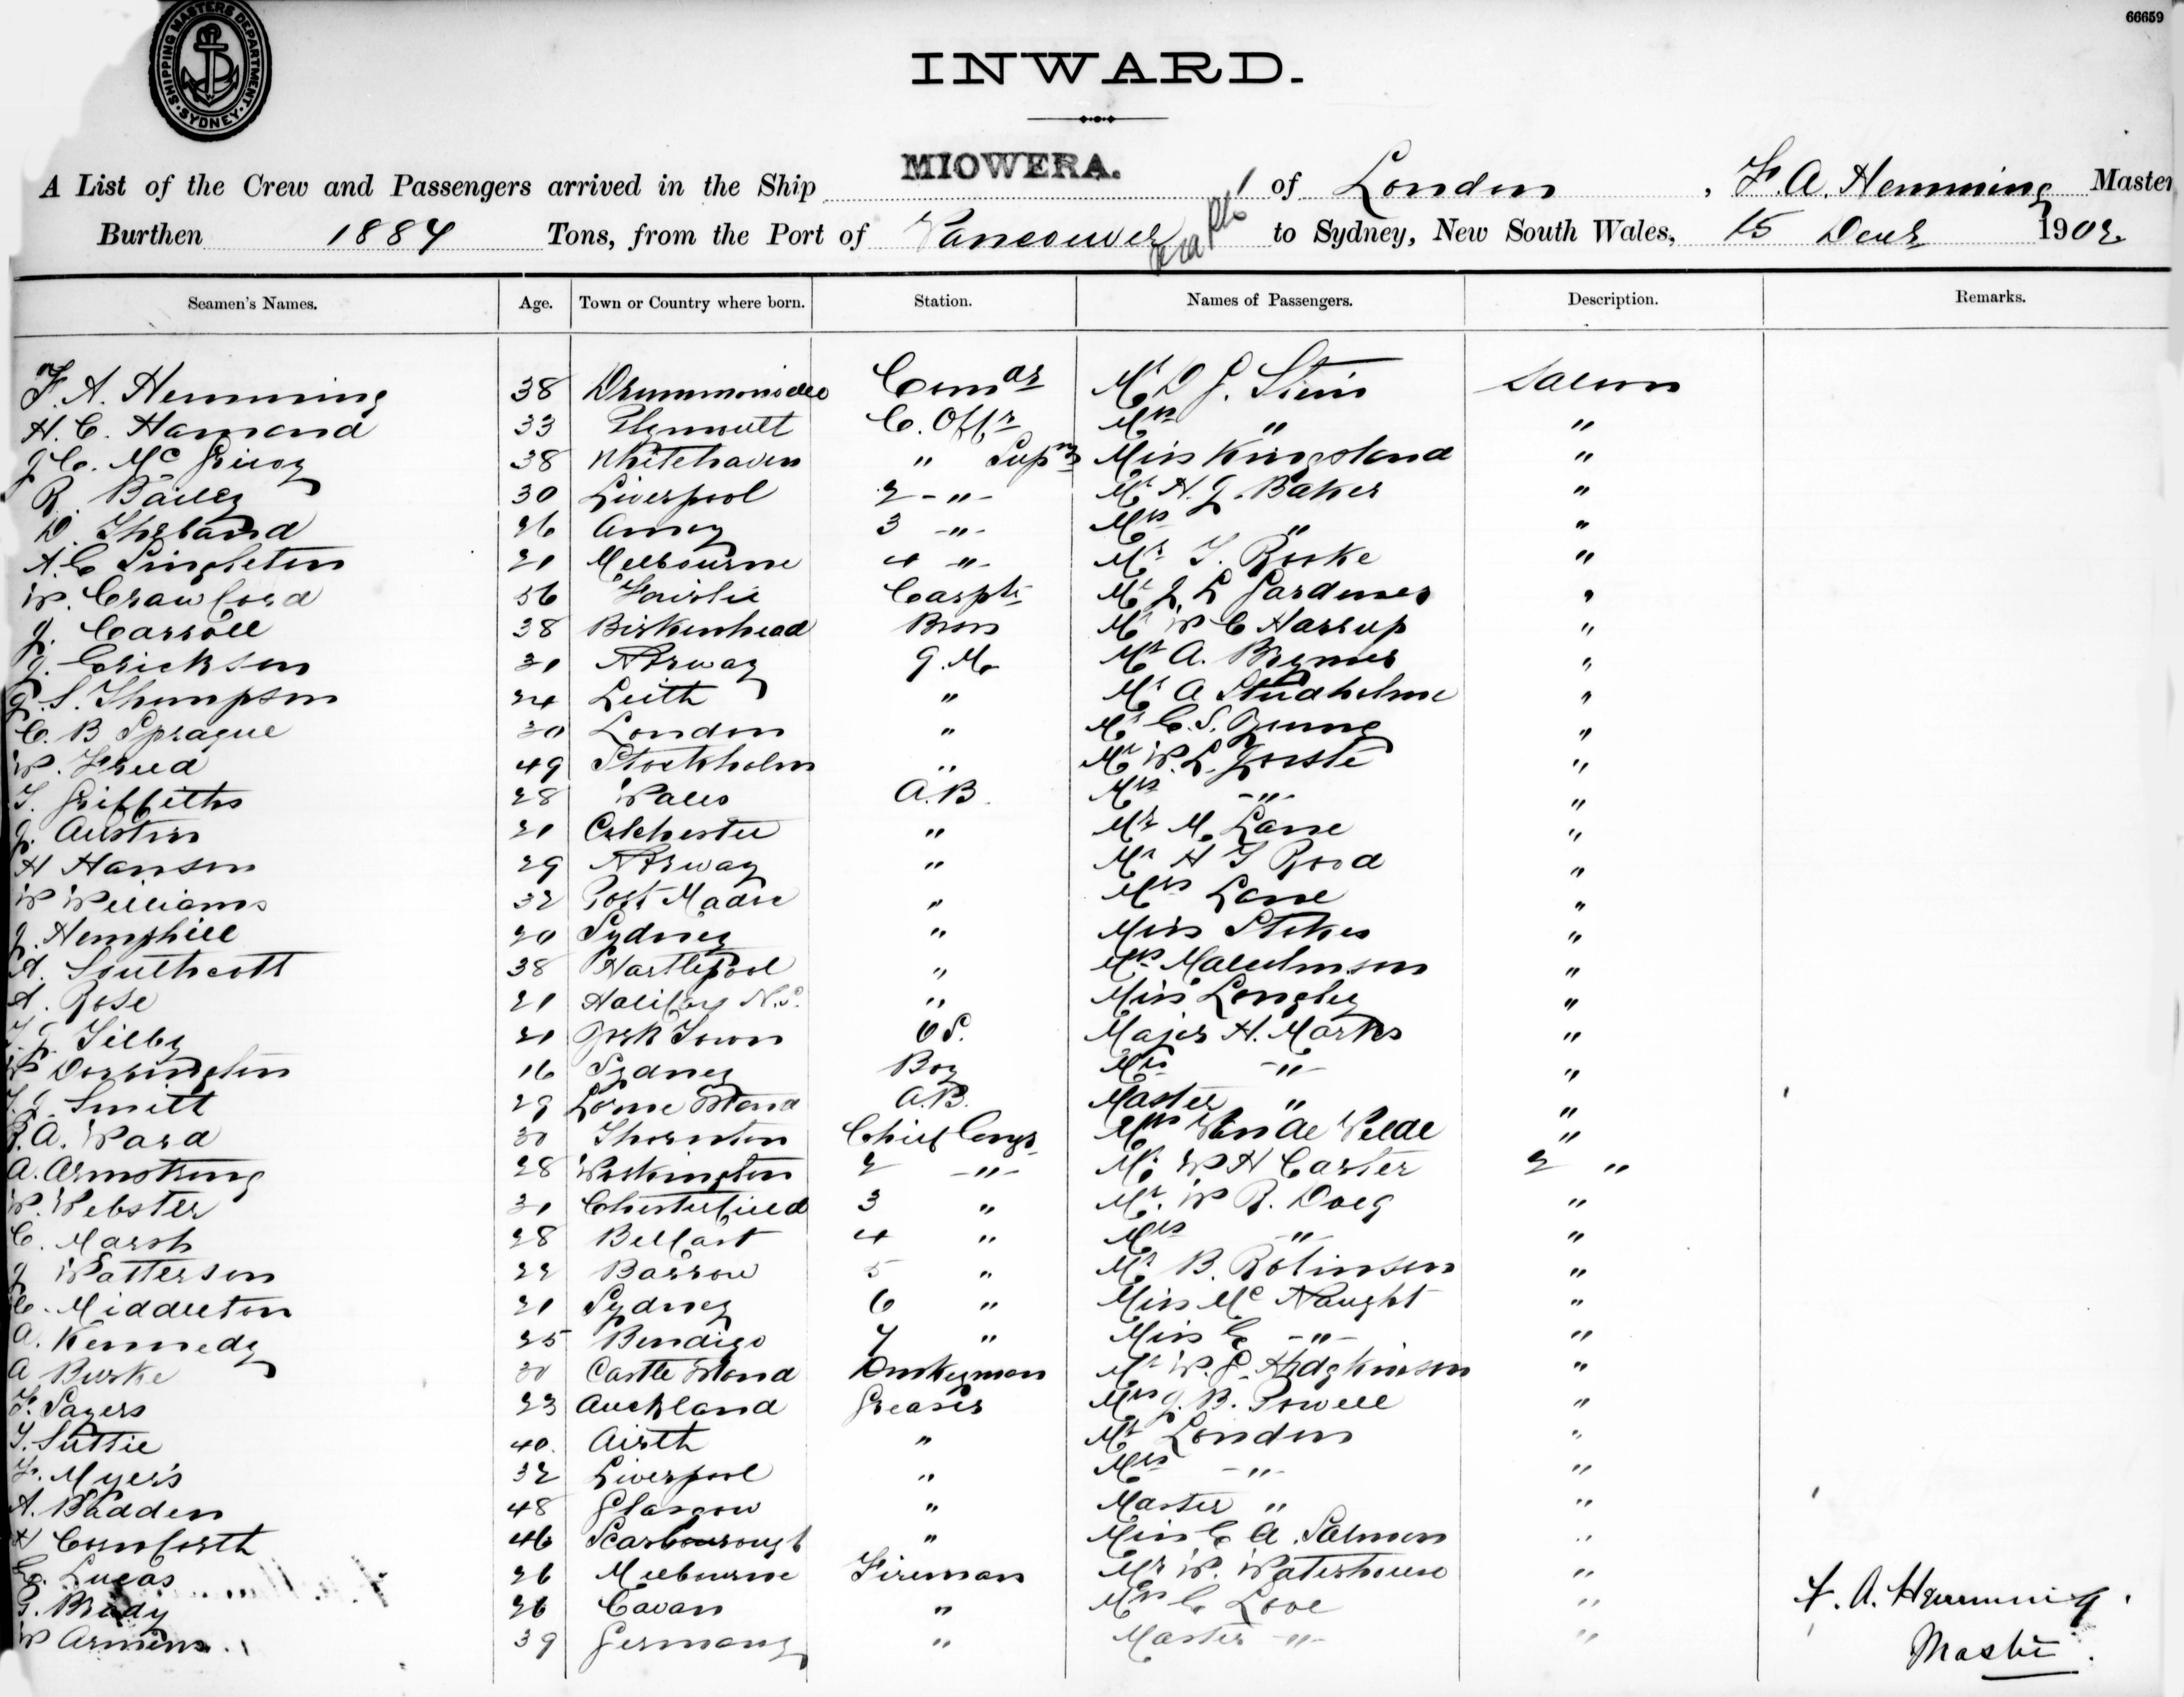 66659
SHIPPING MASTERS DEPARTMENT. SYDNEY.
INWARD.
A List of the Crew and Passengers arrived in the Ship MIOWERA. of London, F. A. Hemming Master
Burthen 1884 Tons, from the Port of Vancouver to Sydney, New South Wales, 15 Decr 1902
Seamen's Names. Age. Town or Country where born. Station. Names of Passengers. Description. Remarks.
F. A. Hemming 38 Comdr Mr D J. Stein Saloon
H. C. Hamond 33 Plymouth C. Offr Mrs " "
J C. Mc 38 Whitehaven " Supny Miss Kingsland "
R. Bailey 30 Liverpool 2 -"- Mr H. J. Baker "
D. 26 Amoy 3 -"- Mrs " "
A. C Singleton 21 Melbourne 4 -"- Mr T. Rooke "
W. Crawford 56 Fairlie Carptr Mr J L Gardiner "
J. Carroll 38 Birkenhead Bosn Mr W C Harrup "
J. Erickson 31 Norway Q. M. Mr A. Brymer "
J. S. Thompson 24 Leith " Mr A Studholme "
C. B Sprague 30 London " Mr C. S. Young "
W. Freed 49 Stockholm " Mr W. L. "
T. Griffiths 28 Wales A.B. Mrs -"- "
J. Austin 21 Colchester " Mr M. Lane "
H Hanson 29 Norway " Mr H T Rood "
W Williams 32 Port Madoc " Mrs Lane "
J. Hemphill 20 Sydney " Miss Stokes "
A. Southcott 38 Hartlepool " Mrs Malcolmson "
A. Rose 21 Halifax N.S. " Miss Longley "
T. J. Tilby 21 York Town O S. Major H. Marks "
W Dorrington 16 Sydney Boy Mrs -"- "
T. J. Smith 29 A.B. Master " "
R. A. Ward 30 Thornton Chief Engr Mrs Van de Velde "
A. Armstrong 28 Workington 2 -"- Mr W H Carter 2 "
W. Webster 31 Chesterfield 3 " Mr W R. Doeg "
C. Marsh 28 Belfast 4 " Mrs -"- "
J Patterson 22 Barrow 5 " Mr B. Robinson "
C. Middleton 21 Sydney 6 " Miss Mc Naught "
A. Kennedy 25 Bendigo 7 " Miss E -"- "
A Burke 30 Castle Island Donkeyman Mr W. G. Hodgkinson "
F. Sayers 23 Auckland Greaser Mrs J. B. Powell "
T. Suttie 40. Airth " Mr London "
F. Myers 32 Liverpool " Mrs -"- "
A. Badden 48 Glasgow " Master " "
H Cornforth 46 Scarborough " Miss E A. Salmon "
E. Lucas 26 Melbourne Fireman Mr W. Waterhouse "
G. Brady 26 Cavan " Mrs C Love "
W 39 Germany " Master -"- "
F. A. Hemming.
Master.